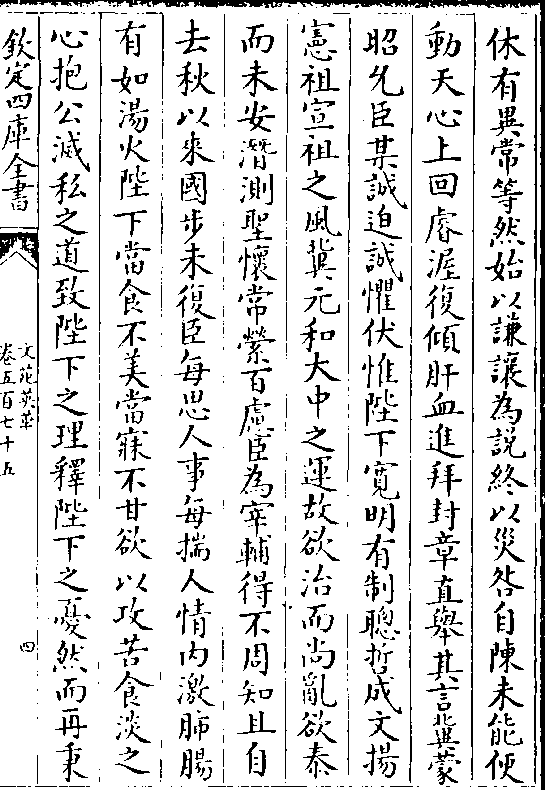 休有異常等然始以謙讓為說終以災咎自陳未能便
動天心上回睿渥復傾肝血進拜封章直舉其言冀蒙
昭允臣某誠迫誠懼伏惟陛下寛明有制聰哲成文揚
憲祖宣祖之風冀元和大中之運故欲治而尚亂欲泰
而未安潛測聖懷常縈百慮臣為宰輔得不周知且自
去秋以來國步未復臣每思人事每揣人情内激肺腸
有如湯火陛下當食不美當寐不甘欲以攻苦食淡之
心抱公滅私之道致陛下之理釋陛下之憂然而再秉
欽定四庫全書
文苑英華
卷五百七十五
四